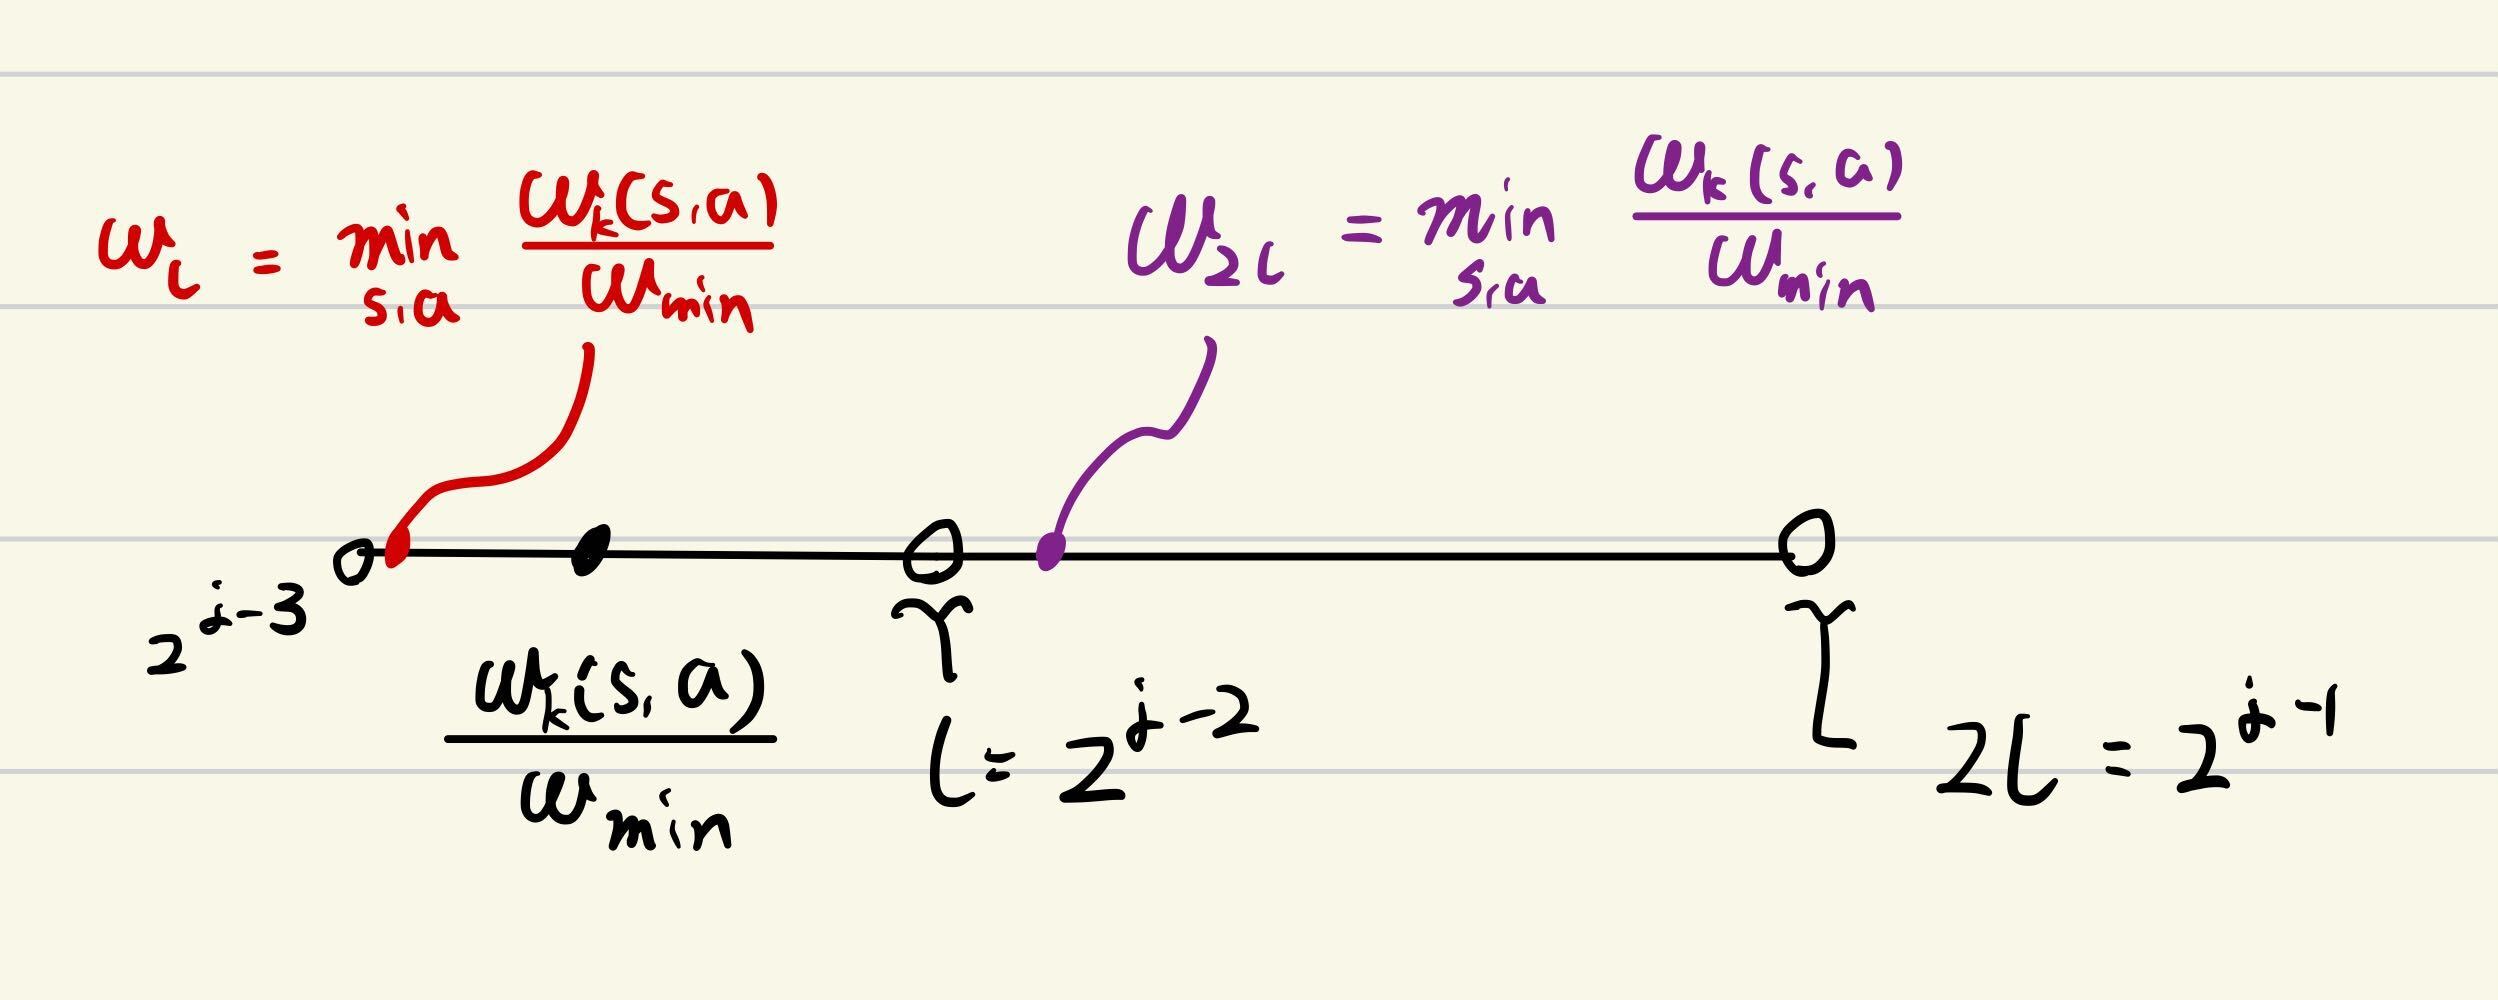 w_L = min_{s,a} w_k(s,a) / w_min
w_{2L} = min_{s,a} w_k(s,a) / w_min
2^{j-3}
w_k(s,a) / w_min
L = 2^{j-2}
2L = 2^{j-1}